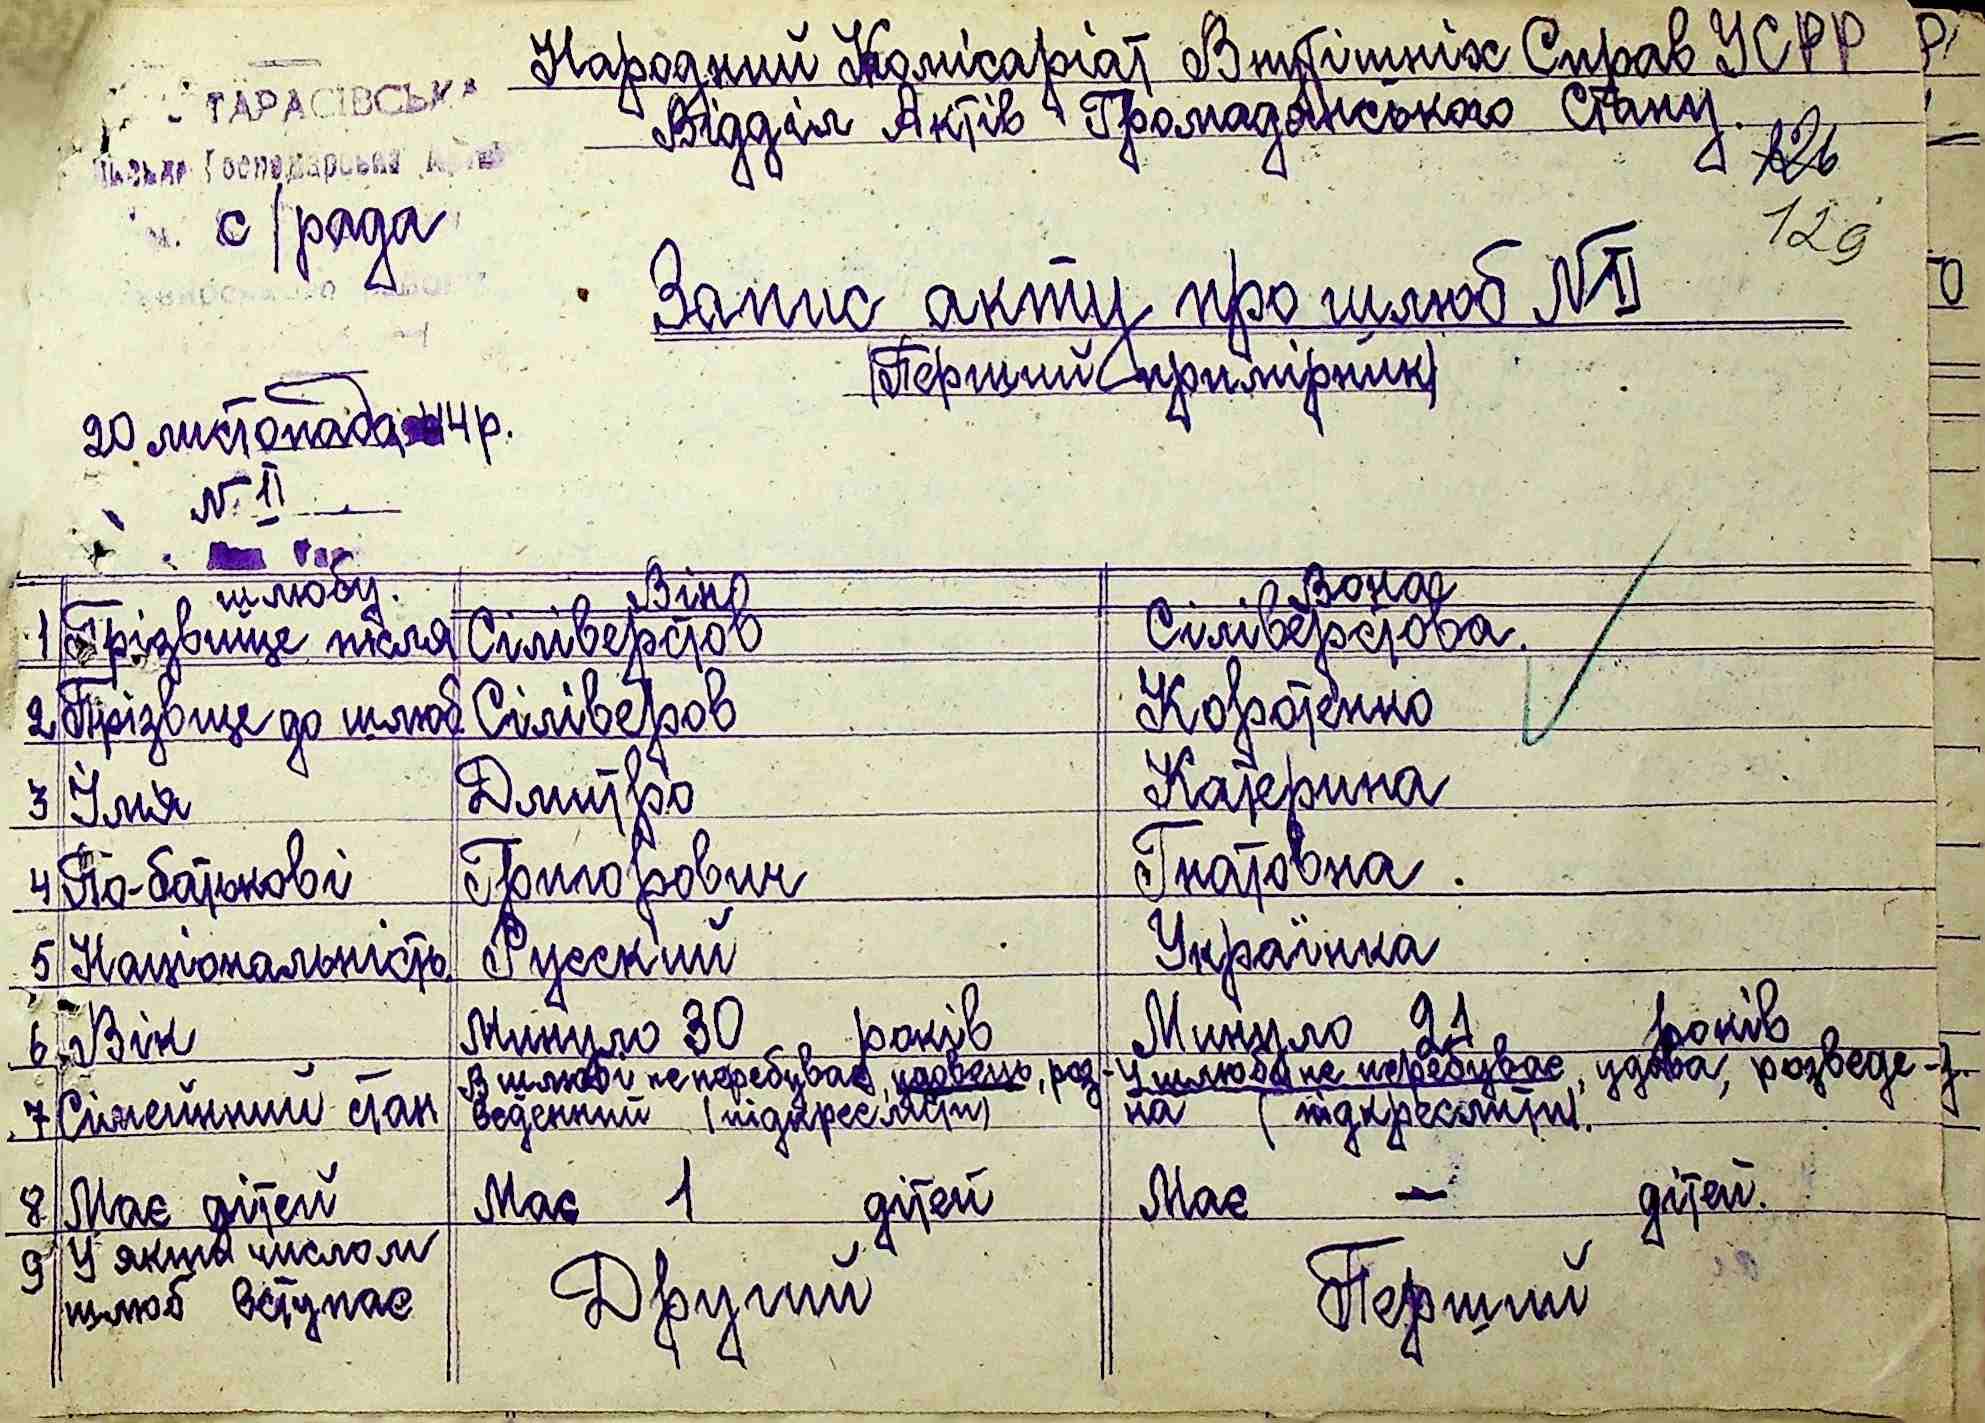 Народний Комісаріат Внутішніх Справ УСРР
Відділ Актів Громадянського Стану.
ТАРАСІВСЬКА
Господарська
с/рада
126
129
Запис акту про шлюб № 11
(Перший примірник)
20 листопада 44 р.
№ 11
шлюбу. Він Вона
1 Прізвище після Сіліверстов Сіліверстова.
2 Прізвище до шлюб Сіліверов Коротенко
3 Їмя Дмитро Катерина
4 По-батькові Григорович Гнатовна.
5 Національність Русский Українка
6 Вік Минуло 30 років Минуло 21 років
7 Сімейнний стан В шлюбі не перебуває, удовець, роз-веденний (підкреслити) У шлюбі не перебуває, удова, розведе-на (підкреслити).
8 Має дітей Має 1 дітей Має — дітей.
9 У який числом шлюб вступає Другий Перший